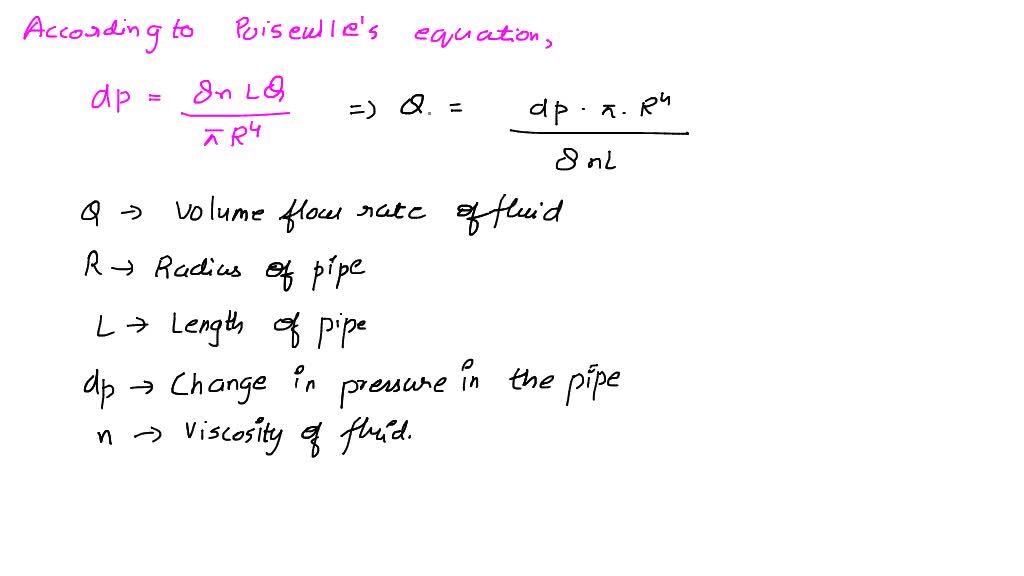 According to Poiseulle's equation,
dp = 8n LQ / π R⁴ => Q. = dp · π. R⁴ / 8 nL
Q → Volume flow rate of fluid
R → Radius of pipe
L → Length of pipe
dp → Change in pressure in the pipe
n → Viscosity of fluid.